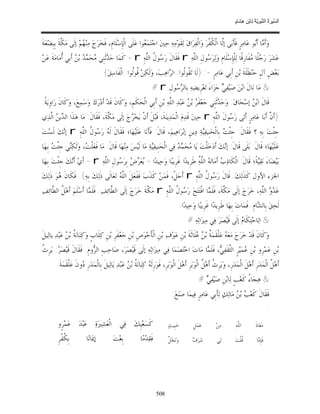 السِّيرَةُ النَّبَوِيَّةُ لِابْنِ هِشَامٍ
وَأَمَّا أَبُو عَامِرٍ فَأَبَى إلَّا الْكُفْرَ وَالْفِرَاقَ لِقَوْمِهِ حِينَ اجْتَمَعُوا عَلَى الْإِسْلَامِ، فَخَرَجَ مِنْهُمْ إلَى مَكَّةَ بِبِضْعَةَ
عَشَرَ رَجُلًا مُفَارِقًا لِلْإِسْلَامِ وَلِرَسُولِ اللَّهِ ﷺ فَقَالَ رَسُولُ اللَّهِ ﷺ - كَمَا حَدَّثَنِي مُحَمَّدُ بْنُ أَبِي أُمَامَةَ عَنْ
بَعْضِ آلِ حَنْظَلَةَ بْنِ أَبِي عَامِرٍ - (لَا تَقُولُوا: الرَّاهِبَ، وَلَكِنْ قُولُوا: الْفَاسِقَ)
مَا نَالَ ابْنُ صَيْفِيٍّ جَزَاءَ تَعْرِيضِهِ بِالرَّسُولِ ﷺ
قَالَ ابْنُ إسْحَاقَ: وَحَدَّثَنِي جَعْفَرُ بْنُ عَبْدِ اللَّهِ بْنِ أَبِي الْحَكَمِ، وَكَانَ قَدْ أَدْرَكَ وَسَمِعَ، وَكَانَ رَاوِيَةً:
(أَنَّ أَبَا عَامِرٍ أَتَى رَسُولَ اللَّهِ ﷺ حِينَ قَدِمَ الْمَدِينَةَ، قَبْلَ أَنْ يَخْرُجَ إلَى مَكَّةَ، فَقَالَ: مَا هَذَا الدِّينُ الَّذِي
جِئْتَ بِهِ ؟ فَقَالَ: جِئْتُ بِالْحَنِيفِيَّةِ دِينِ إبْرَاهِيمَ، قَالَ: فَأَنَا عَلَيْهَا، فَقَالَ لَهُ رَسُولُ اللَّهِ ﷺ إنَّكَ لَسْتَ
عَلَيْهَا؛ قَالَ: بَلَى قَالَ: إنَّكَ أَدْخَلْتَ يَا مُحَمَّدُ فِي الْحَنِيفِيَّةِ مَا لَيْسَ مِنْهَا قَالَ: مَا فَعَلْتُ، وَلَكِنِّي جِئْتُ بِهَا
بَيْضَاءَ نَقِيَّةً؛ قَالَ: الْكَاذِبُ أَمَاتَهُ اللَّهُ طَرِيدًا غَرِيبًا وَحِيدًا - يُعَرِّضُ بِرَسُولِ اللَّهِ ﷺ - أَيْ أَنَّكَ جِئْتَ بِهَا
كَذَلِكَ قَالَ رَسُولُ اللَّهِ ﷺ أَجَلْ، فَمَنْ كَذَبَ فَفَعَلَ اللَّهُ تَعَالَى ذَلِكَ بِهِ) فَكَانَ هُوَ ذَلِكَ
عَدُوَّ اللَّهِ، خَرَجَ إلَى مَكَّةَ، فَلَمَّا افْتَتَحَ رَسُولُ اللَّهِ ﷺ مَكَّةَ خَرَجَ إلَى الطَّائِفِ فَلَمَّا أَسْلَمَ أَهْلُ الطَّائِفِ
لَحِقَ بِالشَّامِ فَمَاتَ بِهَا طَرِيدًا غَرِيبًا وَحِيدًا.
الِاحْتِكَامُ إلَى قَيْصَرَ فِي مِيرَاثِهِ
وَكَانَ قَدْ خَرَجَ مَعَهُ عَلْقَمَةُ بْنُ عُلَاثَةَ بْنِ عَوْفِ بْنِ الْأَحْوَصِ بْنِ جَعْفَرِ بْنِ كِلَابٍ وَكِنَانَةُ بْنُ عَبْدِ يَالِيلَ
بْنِ عَمْرِو بْنِ عُمَيْرٍ الثَّقَفِيُّ، فَلَمَّا مَاتَ اخْتَصَمَا فِي مِيرَاثِهِ إلَى قَيْصَرَ، صَاحِبِ الرُّومِ فَقَالَ قَيْصَرُ: يَرِثُ
أَهْلُ الْمَدَرِ أَهْلَ الْمَدَرِ، وَيَرِثُ أَهْلُ الْوَبَرِ أَهْلَ الْوَبَرِ، فَوَرِثَهُ كِنَانَةُ بْنُ عَبْدِ يَالِيلَ بِالْمَدَرِ دُونَ عَلْقَمَةَ
هِجَاءُ كَعْبٍ لِابْنِ صَيْفِيٍّ
فَقَالَ كَعْبُ بْنُ مَالِكٍ لِأَبِي عَامِرٍ فِيمَا صَنَعَ:
مَعَاذَ اللَّهِ مِنْ عَمَلٍ خَبِيثٍ كَسَعْيِكَ فِي الْعَشِيرَةِ عَبْدَ عَمْرِو
فَإِمَّا قُلْتَ لِي شَرَفٌ وَنَخْلٌ فَقِدْمًا بِعْتَ إيمَانًا بِكُفْرِ
508